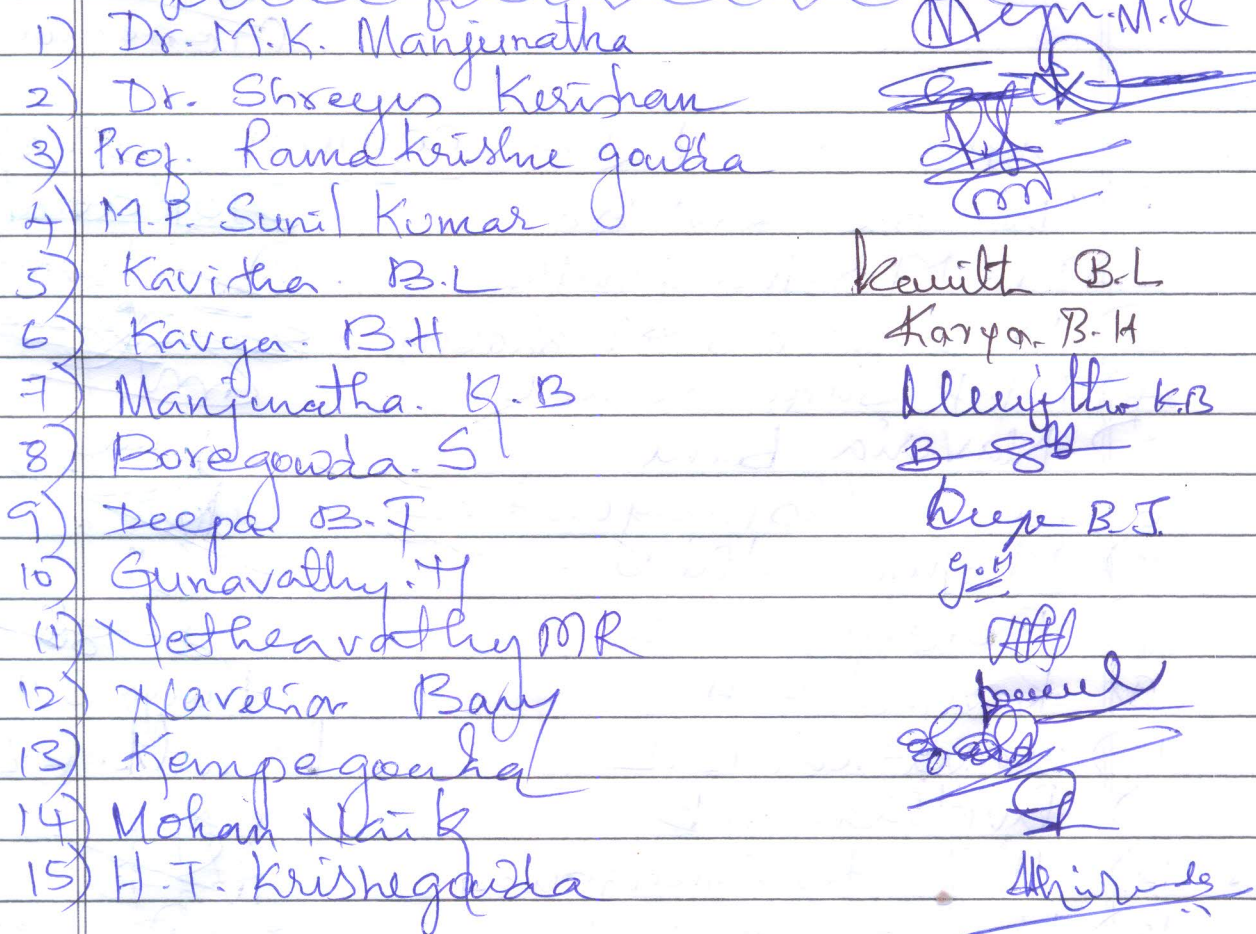 1) Dr. M.K. Manjunatha M.K
2) Dr. Shreyes Kerishan
3) Prof. Ramakrishne gowda
4) M.P. Sunil Kumar
5) Kavitha. B.L Kavith B.L
6) Kavya. B.H Kavya. B.H
7) Manjunatha. K.B K.B
8) Boregowda. S B
9) Deepa B.J Deepa B.J.
10) Gunavathy. H G.H
11) Netheavathy MR
12) Bany
13) Kempegowda
14) Mohan Naik
15) H.T. Krishegowda